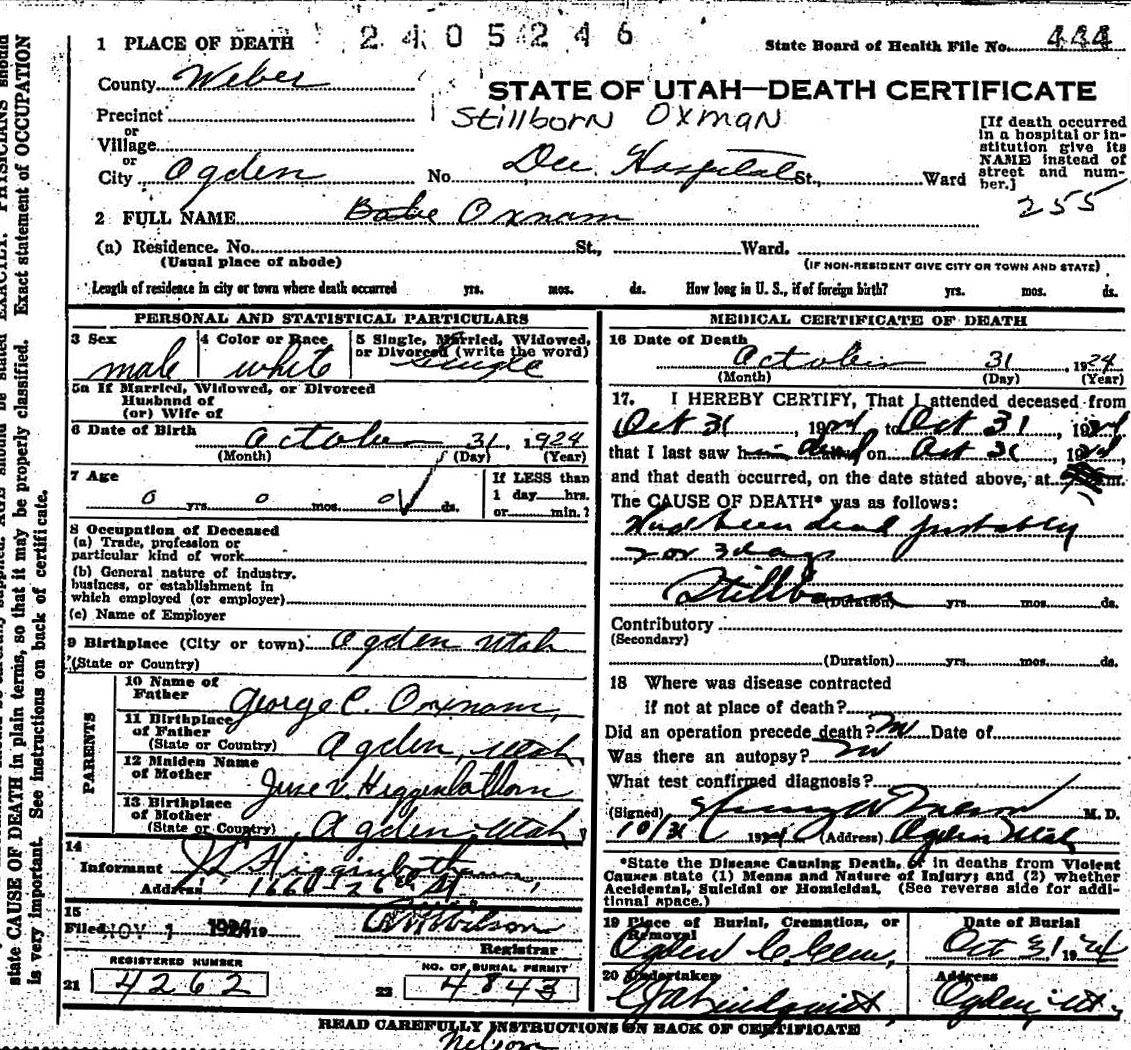 2405246
State Board of Health File No. 444
1 PLACE OF DEATH
County Weber
STATE OF UTAH—DEATH CERTIFICATE
Precinct
Stillborn Oxman
or
Village
or
City Ogden No. Dee Hospital St., Ward
[If death occurred
in a hospital or in-
stitution give its
NAME instead of
street and num-
ber.]
255
2 FULL NAME Babe Oxnam
(a) Residence. No. St., Ward.
(Usual place of abode) (IF NON-RESIDENT GIVE CITY OR TOWN AND STATE)
Length of residence in city or town where death occurred yrs. mos. ds. How long in U. S., if of foreign birth? yrs. mos. ds.
PERSONAL AND STATISTICAL PARTICULARS
3 Sex
male
4 Color or Race
white
5 Single, Married, Widowed,
or Divorced (write the word)
Single
5a If Married, Widowed, or Divorced
Husband of
(or) Wife of
6 Date of Birth October 31, 1924
(Month) (Day) (Year)
7 Age
0 yrs. 0 mos. 0 ds.
If LESS than
1 day hrs.
or min.?
8 Occupation of Deceased
(a) Trade, profession or
particular kind of work
(b) General nature of industry,
business, or establishment in
which employed (or employer)
(c) Name of Employer
9 Birthplace (City or town) Ogden Utah
(State or Country)
PARENTS
10 Name of
Father George C. Oxnam,
11 Birthplace
of Father
(State or Country) Ogden, Utah
12 Maiden Name
of Mother June V. Higginbothom
13 Birthplace
of Mother
(State or Country) Ogden, Utah,
14
Informant Higginbotham,
Address 1660 - 26th St,
15
Filed NOV 1 1924 19 Wilson
Registrar
REGISTERED NUMBER
21 4262
NO. OF BURIAL PERMIT
22 4843
MEDICAL CERTIFICATE OF DEATH
16 Date of Death
October 31, 1924
(Month) (Day) (Year)
17. I HEREBY CERTIFY, That I attended deceased from
Oct 31, 1924, to Oct 31, 1924,
that I last saw him dead on Oct 31, 1924,
and that death occurred, on the date stated above, at m.
The CAUSE OF DEATH* was as follows:
Had been dead probably
2 or 3 days
Stillborn
(Duration) yrs. mos. ds.
Contributory
(Secondary)
(Duration) yrs. mos. ds.
18 Where was disease contracted
if not at place of death?
Did an operation precede death? no Date of
Was there an autopsy? no
What test confirmed diagnosis?
(Signed) M. D.
10/31 1924 (Address) Ogden Utah
*State the Disease Causing Death, or in deaths from Violent
Causes state (1) Means and Nature of Injury; and (2) whether
Accidental, Suicidal or Homicidal. (See reverse side for addi-
tional space.)
19 Place of Burial, Cremation, or
Removal
Ogden C. Cem,
Date of Burial
Oct 31 1924
20 Undertaker
Lindquist,
Address
Ogden, Ut.,
READ CAREFULLY INSTRUCTIONS ON BACK OF CERTIFICATE
Nelson
state CAUSE OF DEATH in plain terms, so that it may be properly classified. Exact statement of OCCUPATION
is very important. See instructions on back of certificate.